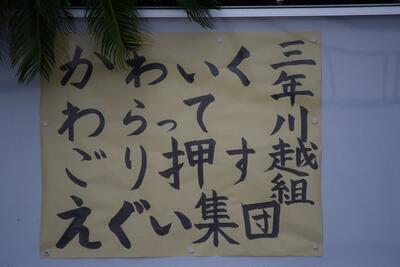 三年川越組
かわいく
わらって
ごり押す
えぐい集団